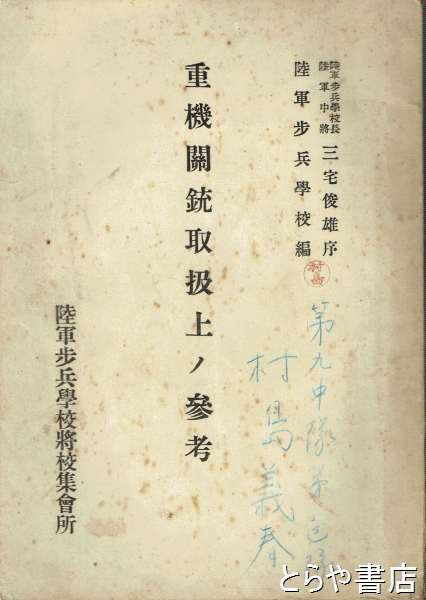 陸軍步兵學校長
陸軍中將
三宅俊雄序
陸軍步兵學校編
村島
重機關銃取扱上ノ參考
陸軍步兵學校將校集會所
第九中隊第
村島義春
とらや書店